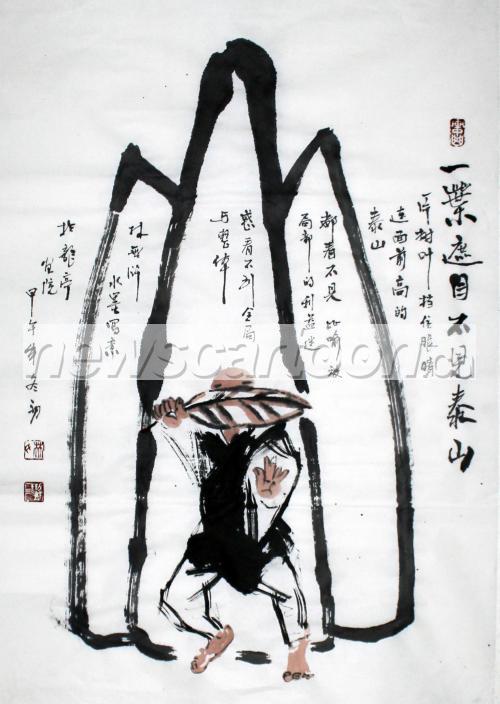 一葉遮目不见泰山
一片树叶挡住眼睛
连面前高的
泰山
都看不见 比喻被
局部的利益迷
惑看不到全局
与整体
水墨写意
龍亭
画院
甲午年